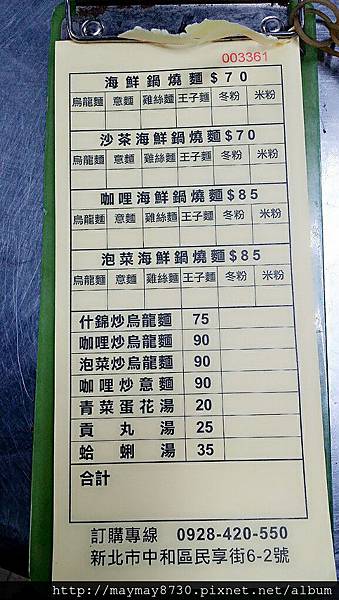 003361
海鮮鍋燒麵$70
烏龍麵 意麵 雞絲麵 王子麵 冬粉 米粉
沙茶海鮮鍋燒麵$70
烏龍麵 意麵 雞絲麵 王子麵 冬粉 米粉
咖哩海鮮鍋燒麵$85
烏龍麵 意麵 雞絲麵 王子麵 冬粉 米粉
泡菜海鮮鍋燒麵$85
烏龍麵 意麵 雞絲麵 王子麵 冬粉 米粉
什錦炒烏龍麵 75
咖哩炒烏龍麵 90
泡菜炒烏龍麵 90
咖哩炒意麵 90
青菜蛋花湯 20
貢丸湯 25
蛤蜊湯 35
合計
訂購專線 0928-420-550
新北市中和區民享街6-2號
http://maymay8730.pixnet.net/album